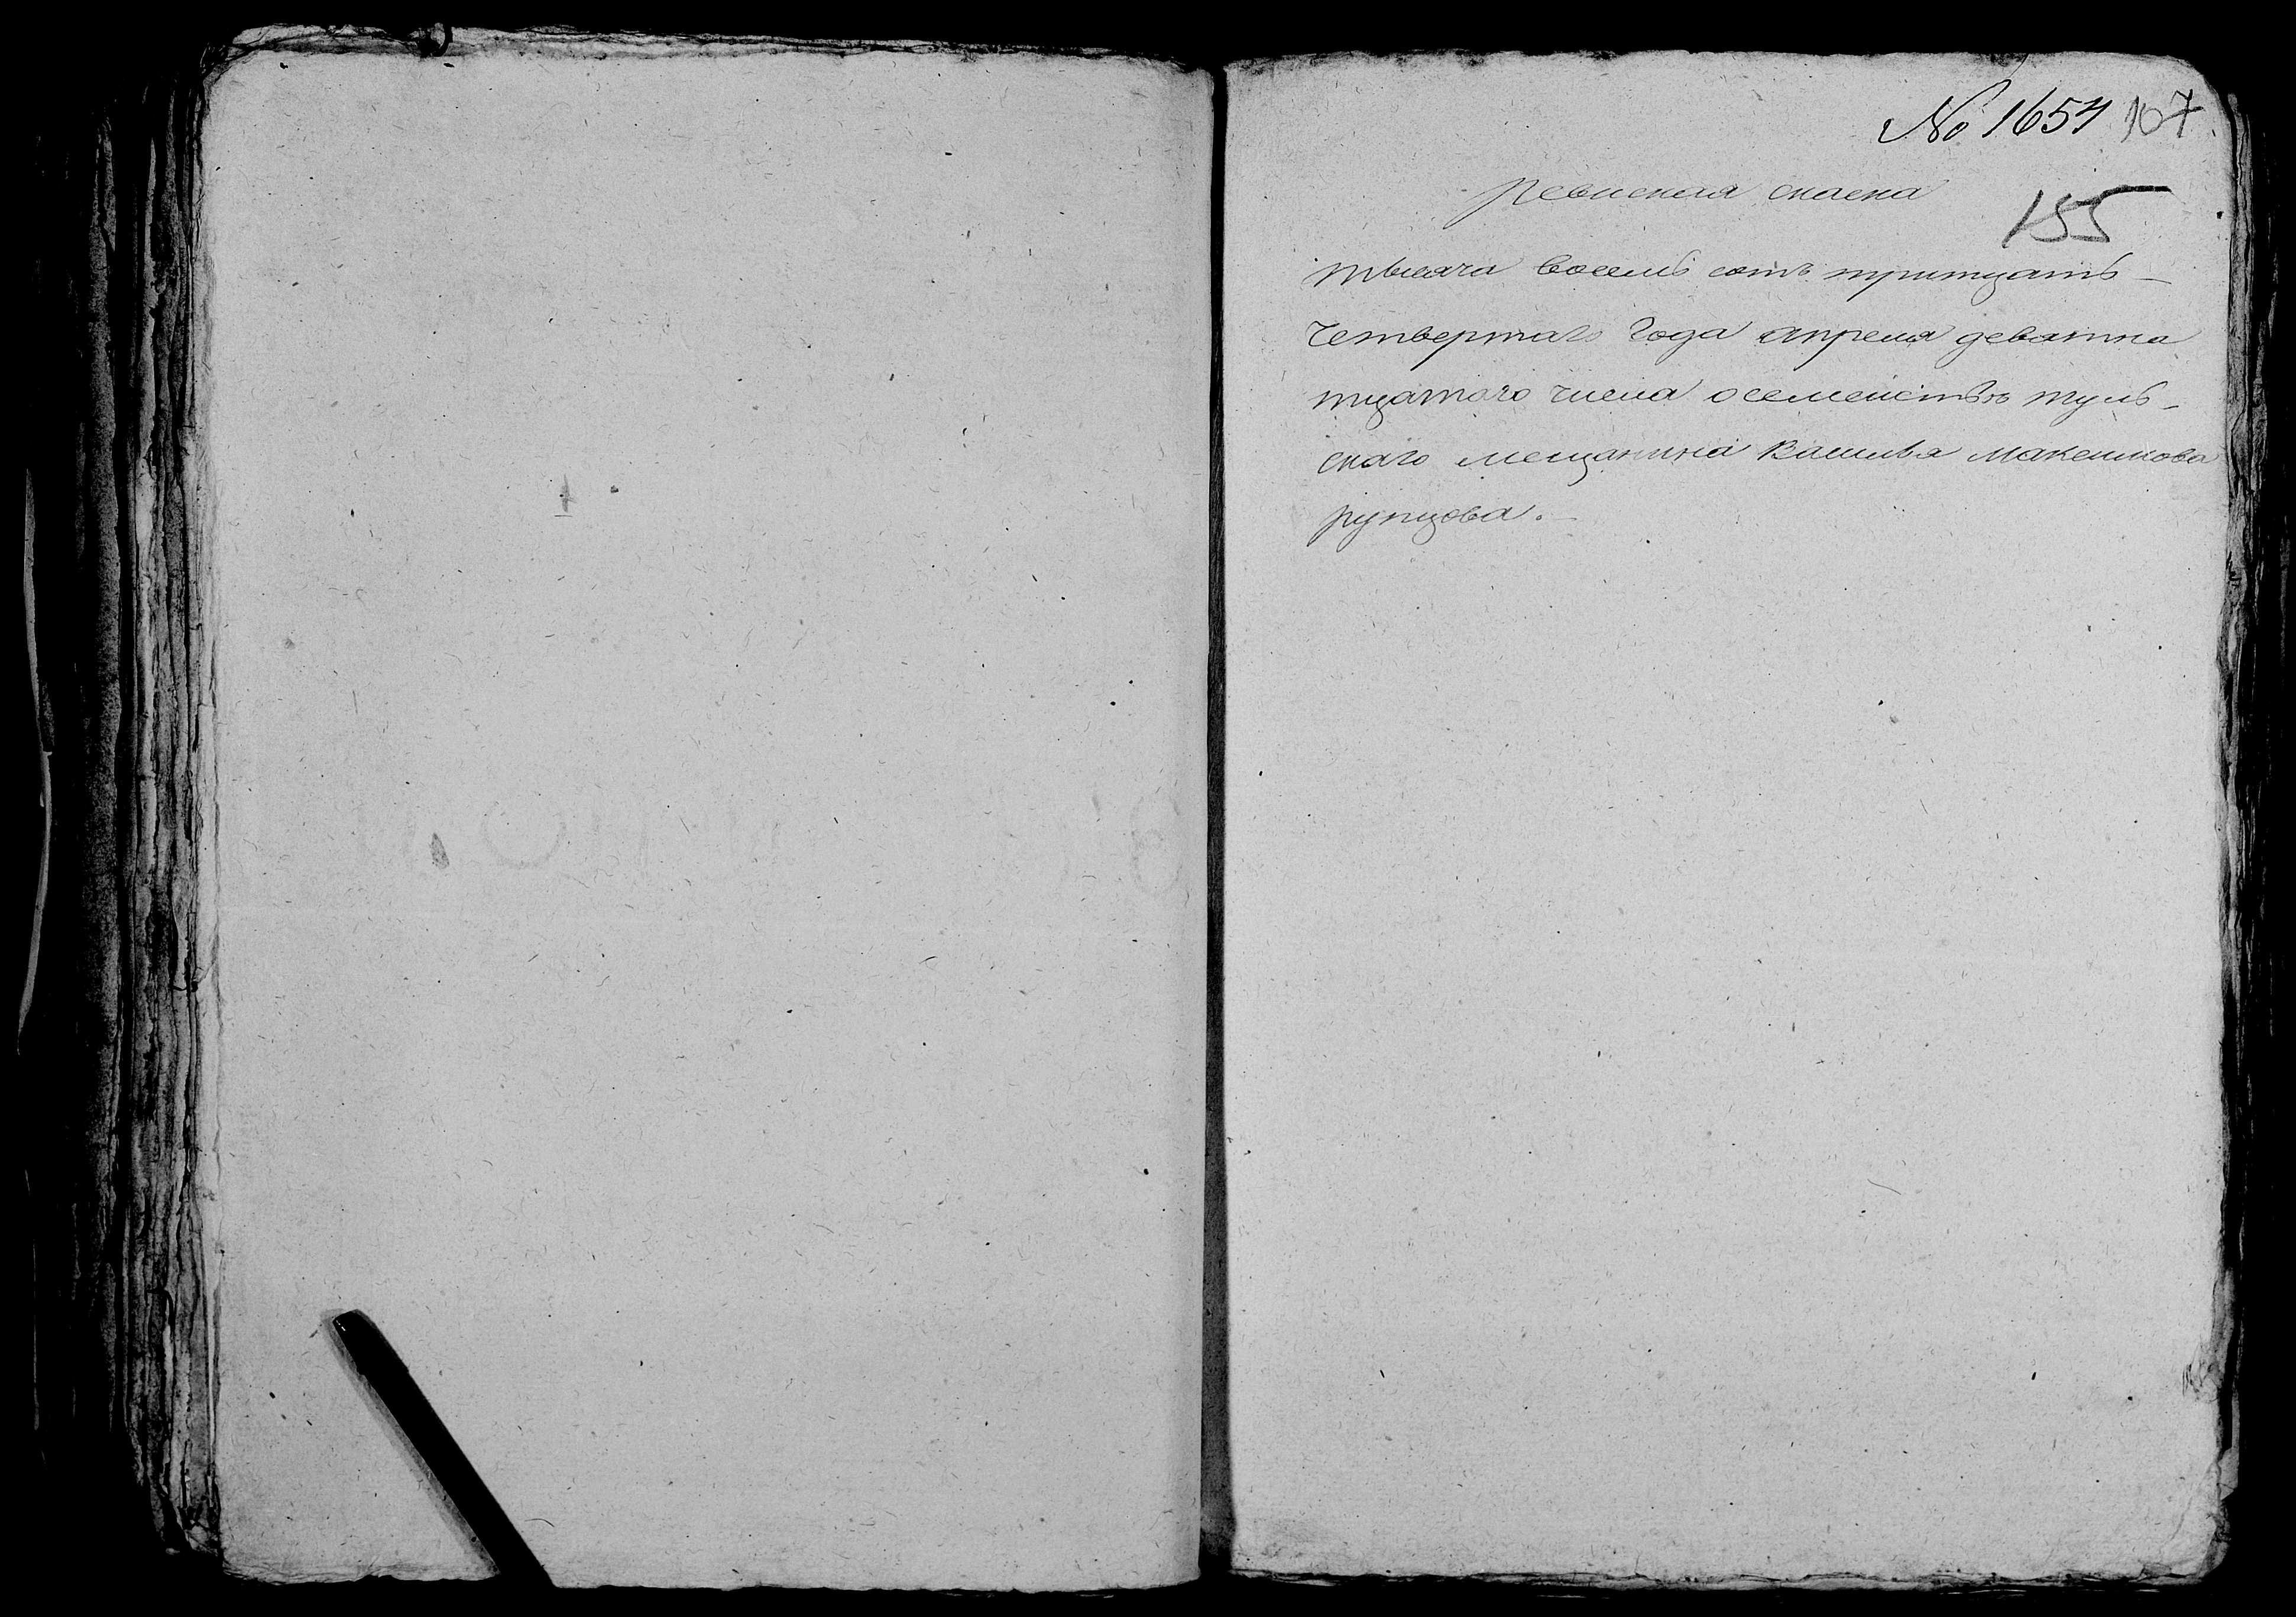 № 1654 107
ревиская скаска
155
тысяча восемь сотъ тритцать
четвертаго года апреля девятна
тцатого числа осемействѣ туль-
скаго мещанина Василья Максимова
рупцова.